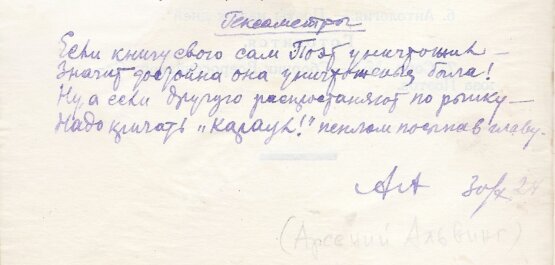 Гекзаметры
Если книгу свого сам Поэт уничтожил —
Значит достойна она уничтоженья была!
Ну а если другого распространяют по рынку —
Надо кричать „караул!" пеплом посыпав главу.
АА 30/X 24
(Арсений Альвинг)